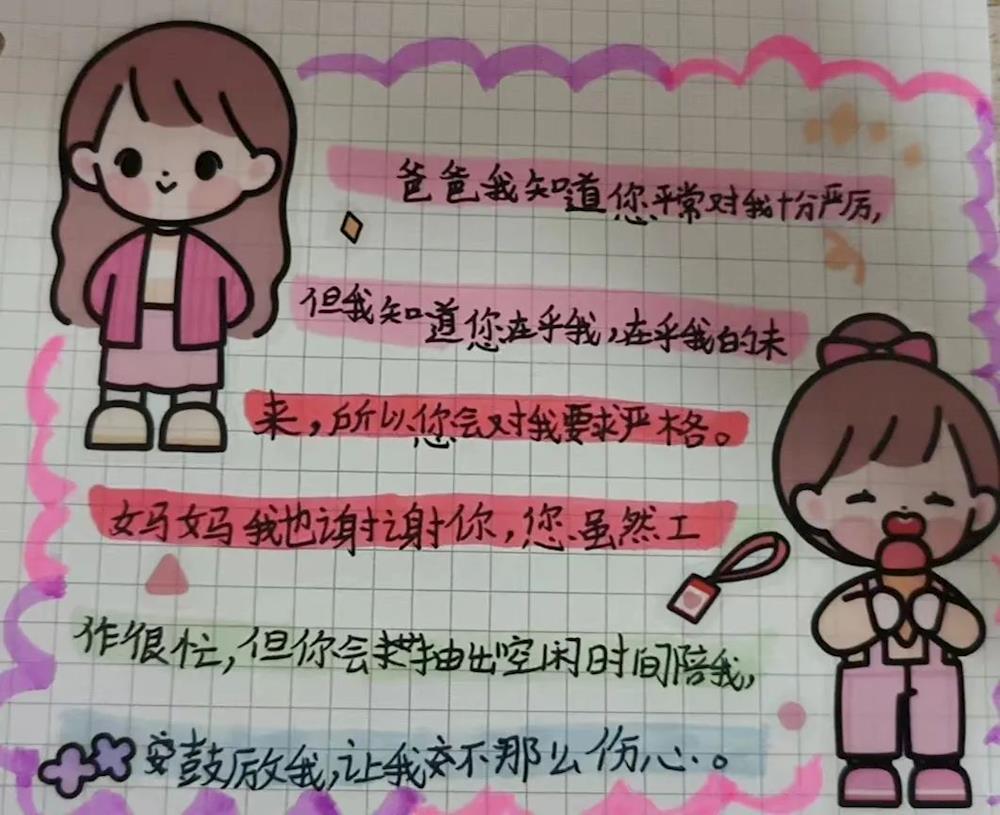 爸爸我知道您平常对我十分严厉,
但我知道您在乎我,在乎我的未
来,所以您会对我要求严格。
妈妈我也谢谢你,您虽然工
作很忙,但你会抽出空闲时间陪我,
安鼓厉我,让我不那么伤心。